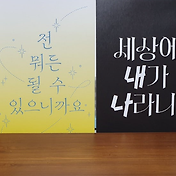 전
뭐든
될 수
있으니까요
세상에
내가
나라니